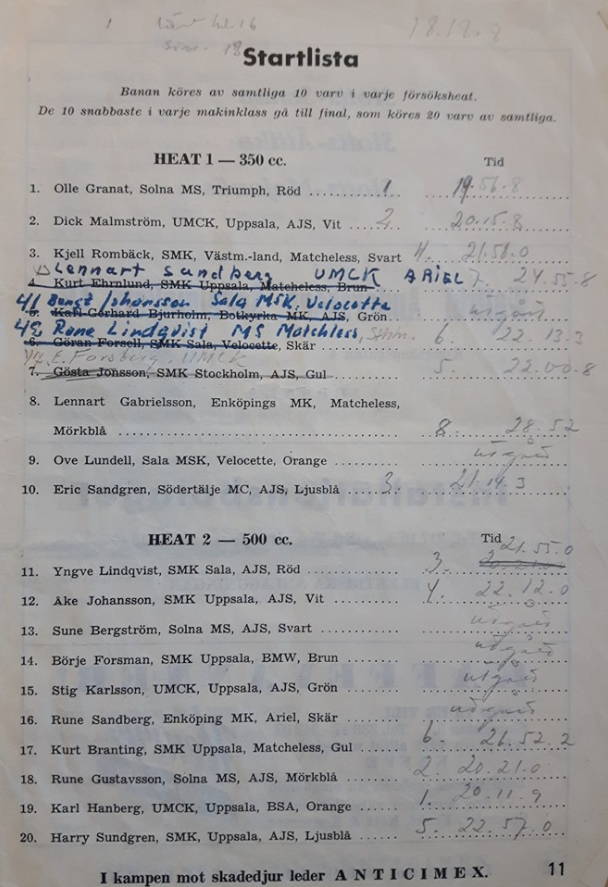 18.18.8
Startlista
Banan köres av samtliga 10 varv i varje försöksheat.
De 10 snabbaste i varje makinklass gå till final, som köres 20 varv av samtliga.
HEAT 1 — 350 cc. Tid
1. Olle Granat, Solna MS, Triumph, Röd 1 19.56.8
2. Dick Malmström, UMCK, Uppsala, AJS, Vit 2 20.15.8
3. Kjell Rombäck, SMK, Västm.-land, Matcheless, Svart 4. 21.51.0
Lennart Sandberg UMCK ARIEL 7. 24.55.8
4. Kurt Ehrnlund, SMK Uppsala, Matcheless, Brun
41 Bengt Johansson Sala MSK, Velocette
5. Karl-Gerhard Bjurholm, Botkyrka MK, AJS, Grön utgått
42 Rune Lindqvist MS Matchless, 6. 22.13.3
6. Göran Forsell, SMK Sala, Velocette, Skär
44. E. Forsberg. UMCK
7. Gösta Jonsson, SMK Stockholm, AJS, Gul 5. 22.00.8
8. Lennart Gabrielsson, Enköpings MK, Matcheless,
Mörkblå 8. 28.52
9. Ove Lundell, Sala MSK, Velocette, Orange utgått
10. Eric Sandgren, Södertälje MC, AJS, Ljusblå 3. 21.14.3
HEAT 2 — 500 cc. Tid
21.55.0
11. Yngve Lindqvist, SMK Sala, AJS, Röd 3.
12. Åke Johansson, SMK Uppsala, AJS, Vit 4. 22.12.0
13. Sune Bergström, Solna MS, AJS, Svart utgått
14. Börje Forsman, SMK Uppsala, BMW, Brun utgått
15. Stig Karlsson, UMCK, Uppsala, AJS, Grön utgått
16. Rune Sandberg, Enköping MK, Ariel, Skär utgått
17. Kurt Branting, SMK Uppsala, Matcheless, Gul 6. 26.52.2
18. Rune Gustavsson, Solna MS, AJS, Mörkblå 2 20.21.0
19. Karl Hanberg, UMCK, Uppsala, BSA, Orange 1. 20.11.9
20. Harry Sundgren, SMK, Uppsala, AJS, Ljusblå 5. 22.57.0
I kampen mot skadedjur leder ANTICIMEX. 11